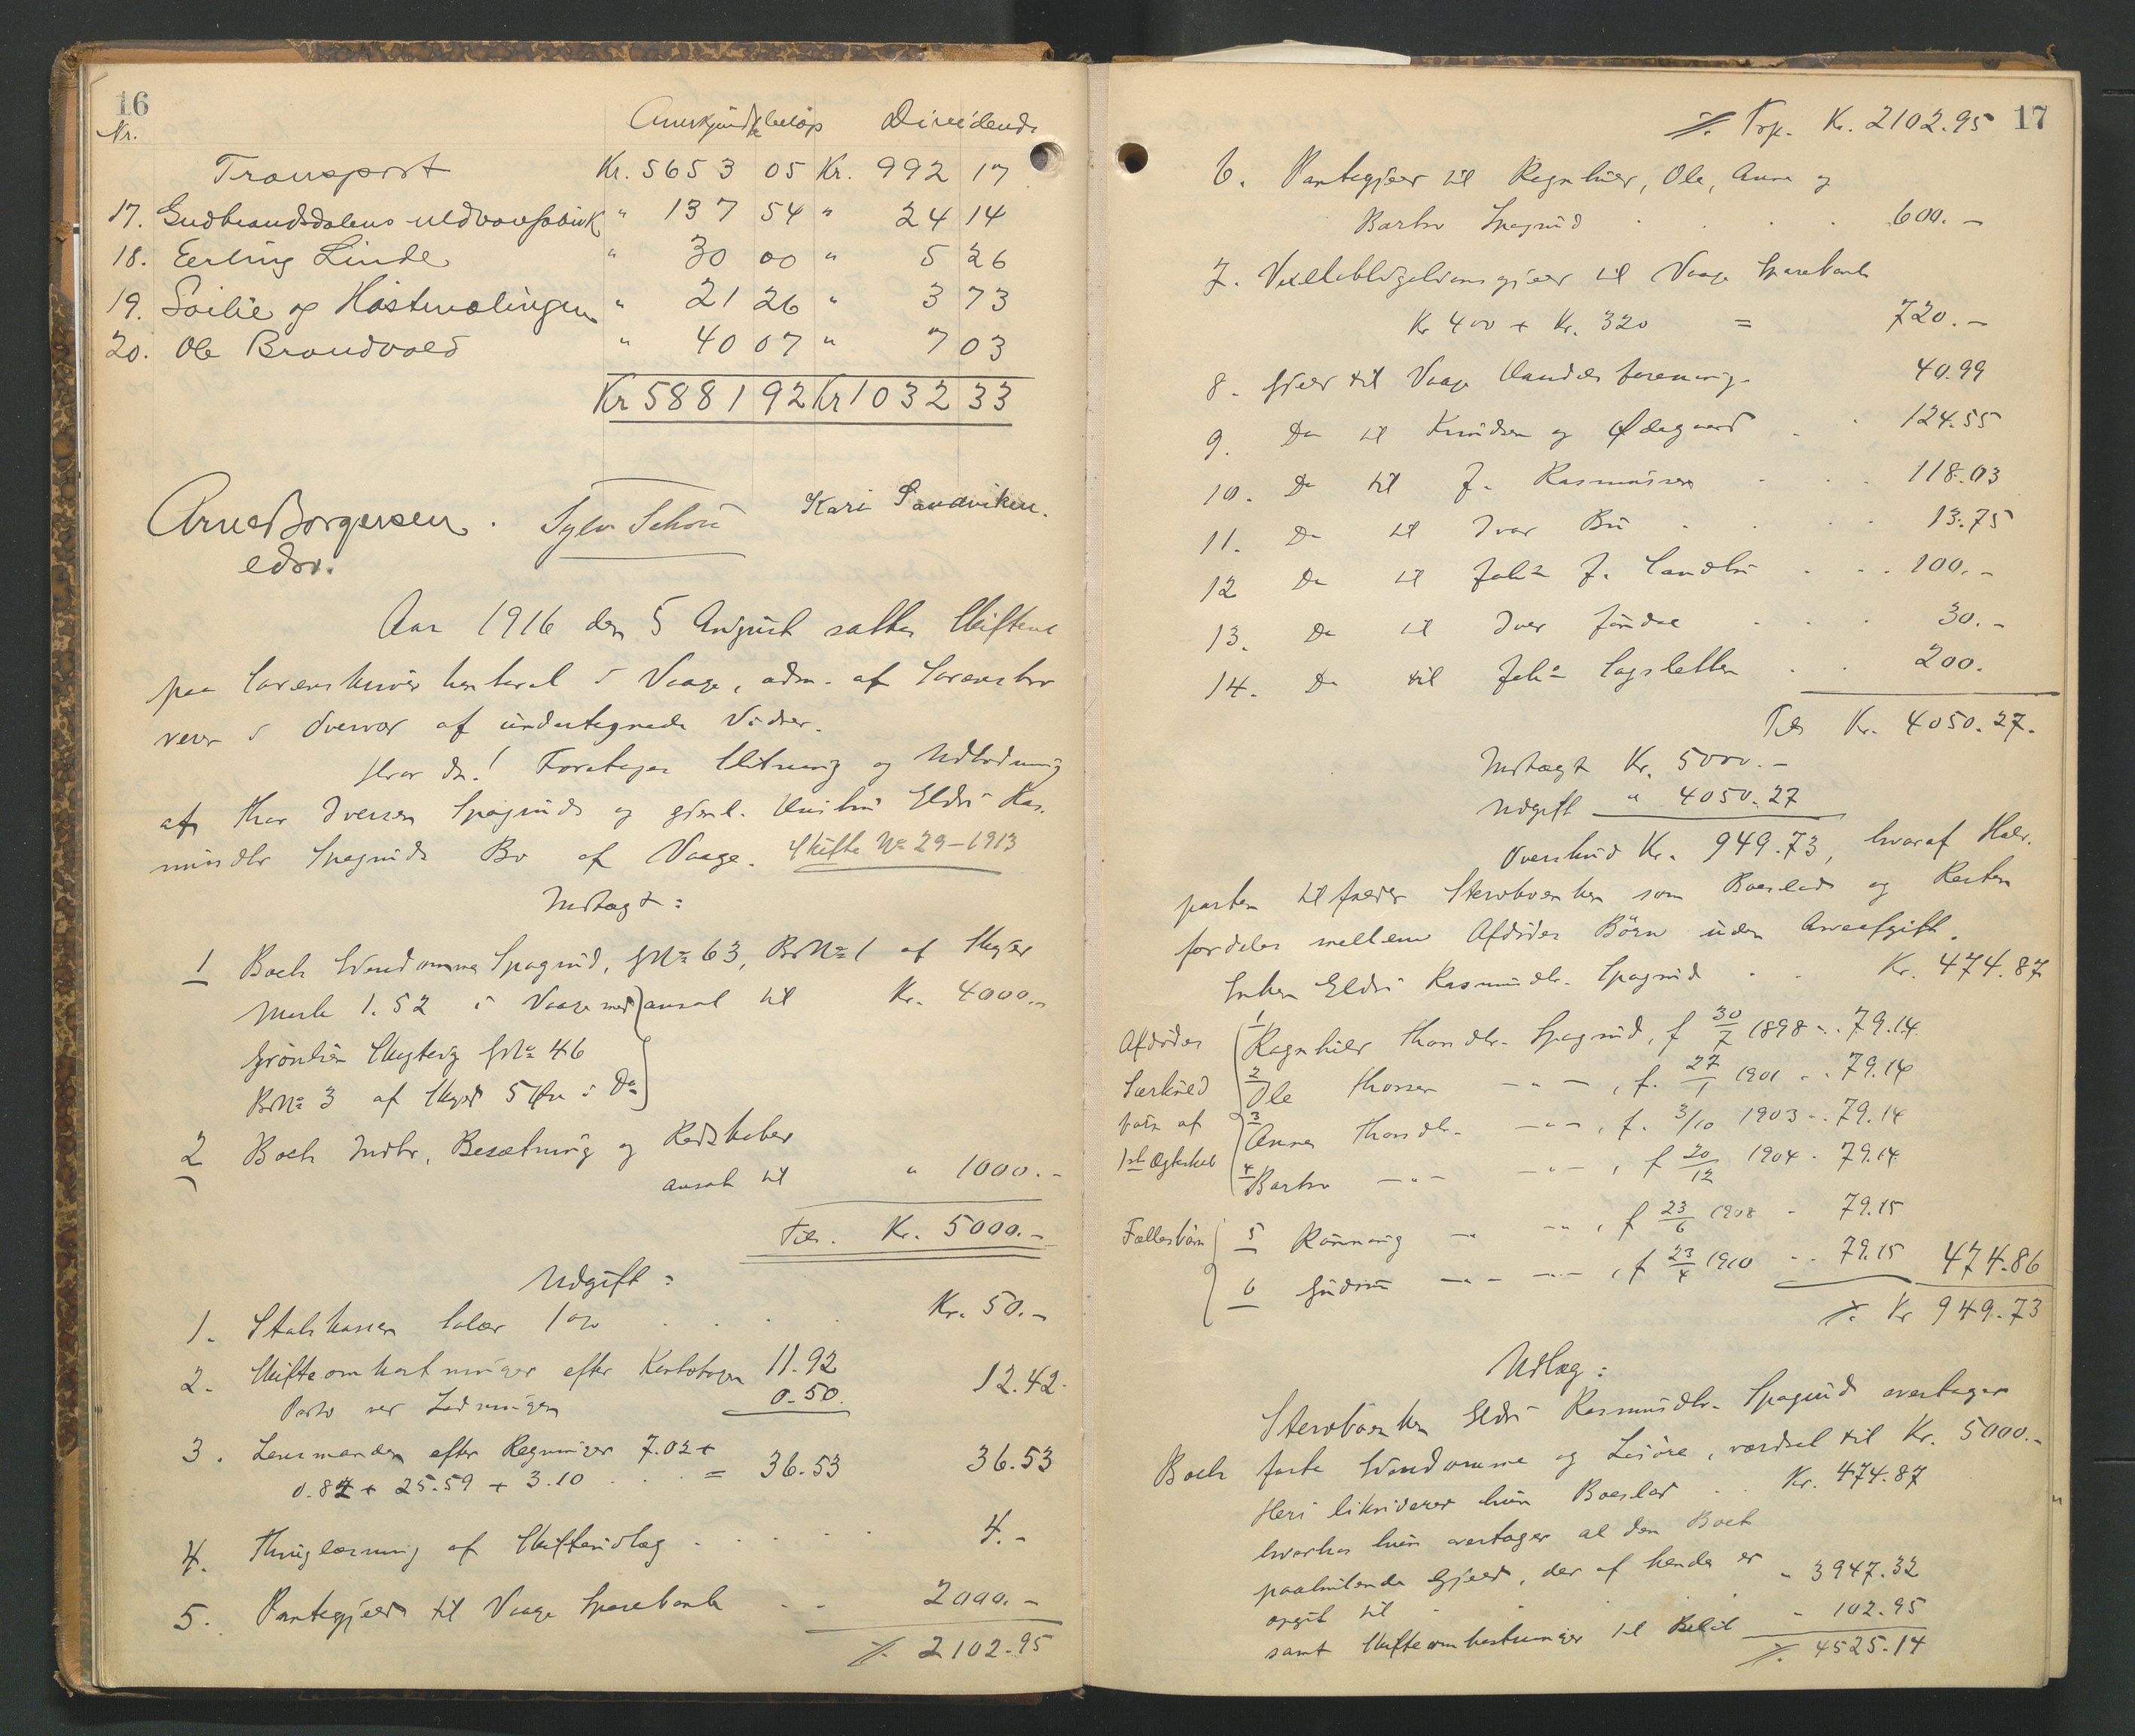 16
Nr. Anerkjendt beløp Dividende
Transport Kr. 5653 05 Kr. 992 17
17. Gudbrandsdalens uldvarefabrik " 137 54 " 24 14
18. Erling Linde " 30 00 " 5 26
19. Soilie og Høstmælingen " 21 26 " 3 73
20. Ole Brandvold " 40 07 " 7 03
Kr 5881 92 Kr 1032 33
Arne Borgersen. Sylv Schou Kari Sandviken.
edsv.
Aar 1916 den 5 August sattes Skifteret
paa Sorenskriverkontoret i Vaage, adm. af Sorenskri
veren i Overvær af undertegnede Vidner.
Hvor da! Foretages Slutning og Udlodning
af Thor Iversen Spagrud og gjenl. Hustru Eldri Ras.
musdtr Spagruds Bo af Vaage. Skifte No 29-1913
Indtægt:
1 Boets Eiendomme Spagrud, GNo 63, BrNo 1 af Skyld
Mark 1.52 i Vaage med ansat til Kr. 4000.-
Grønlien Skogteig GNo 46
BrNo 3 af Skyld 5 Øre i Do
2 Boets Indbo, Besætning og Redskaber
ansat til " 1000.-
Tils. Kr. 5000.-
Udgift:
1. Statskassen Salær 1% . . . . Kr. 50.-
2. Skifteomkostninger efter Kontobogen 11.92
Porto ved Lodningen 0.50. 12.42.
3. Lensmanden efter Regninger 7.02 +
0.82 + 25.59 + 3.10 . . . = 36.53 36.53
4. Thinglæsning af Skifteudlæg . . . . 4.-
5. Pantegjeld til Vaage Sparebank . . 2000.-
%. 2102.95
%. Trp. Kr. 2102.95 17
6. Pantegjeld til Ragnhild, Ole, Anne og
Barbro Spagrud . . . . 600.-
7. Vexelobligationsgjeld til Vaage Sparebank
Kr 400 + Kr. 320 = 720.-
8. Gjeld til Vaage Handelsforening. 40.99
9. Do til Knudsen og Ødegaard . . 124.55
10. Do til J. Rasmussen . . . 118.03
11. Do til Ivar Bu . . . . 13.75
12 Do til Johs J. Sandbu . . . 100.-
13. Do til Iver . . . 30.-
14. Do til Johs Sagsletten . . 200.
Tils Kr. 4050.27.
Indtægt Kr. 5000.-
Udgift " 4050.27
Overskud Kr. 949.73, hvoraf Halv.
parten tilfalder Stervboenken som Boeslod og Resten
fordeles mellem Afdødes Børn uden Arveafgift.
Enken Eldri Rasmusdtr. Spagrud . . Kr. 474.87
Afdødes 1 Ragnhild Thorsdtr. Spagrud, f 30/7 1898 .. 79.14
Særkuld 2 Ole Thorsen - " - , f. 27/1 1901 .. 79.14
børn af 3 Anne Thorsdtr. - " - , f. 3/10 1903 .. 79.14
1ste Ægteskab 4 Barbro - " - - " - , f 20/12 1904 . 79.14
Fællesbørn 5 Rønnaug - " - " , f 23/6 1908 - 79.15
6 Gudrun - " - - " - , f 23/4 1910 .. 79.15 474.86
%. Kr 949.73
Udlæg:
Stervboenken Eldri Rasmusdtr. Spagrud overtager
Boets faste Eiendomme og Løsøre, værdsat til Kr. 5000.-
Heri likviderer hun Boeslod . . Kr. 474.87
hvorhos hun overtager al den Boet
paahvilende Gjeld, der af hende er
opgit til . . . . " 3947.32
samt Skifteomkostninger til Beløb " 102.95
%. 4525.14